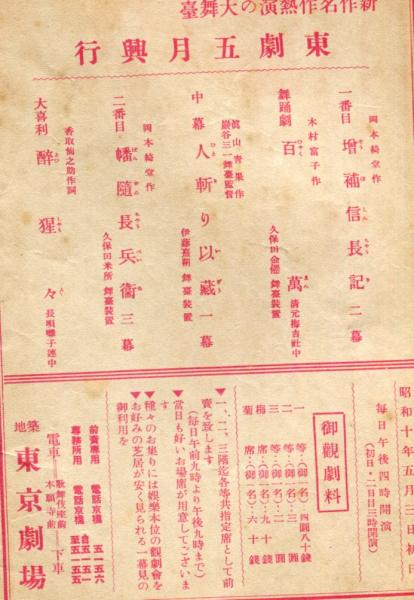 新作名作熱演の大舞臺
東劇五月興行
一番目 岡本綺堂作 增補信長記 二幕
舞踊劇 木村富子作 百萬 清元梅吉社中
久保田金僊 舞臺裝置
中幕 眞山青果作 人斬り以藏 一幕
巖谷三一 舞臺監督
伊藤熹朔 舞臺裝置
二番目 岡本綺堂作 幡隨長兵衞 三幕
久保田米所 舞臺裝置
大喜利 香取仙之助作詞 醉猩々 長唄囃子連中
昭和十年五月三日初日
毎日午後四時開演
(初日・二日目三時開演)
御觀劇料
一等・(御一名)・四圓八十錢
二等・(御一名)・三圓
三等・(御一名)・二圓
梅席・(御一名)・九十錢
菊席・(御一名)・六十錢
▼一、二、三階迄各等共指定席として前
賣を致します
(毎日午前九時より午後九時まで)
▼當日も好いお場席が用意してございま
す
▼種々のお集りには娛樂本位の觀劇會を
▼お好みの芝居が安く見られる一幕見の
御利用を
前賣應用 電話京橋 五一五六
事務所用 電話京橋 自五一五一 至五一五五
電車 歌舞伎座前 本願寺前 下車
築地 東京劇場